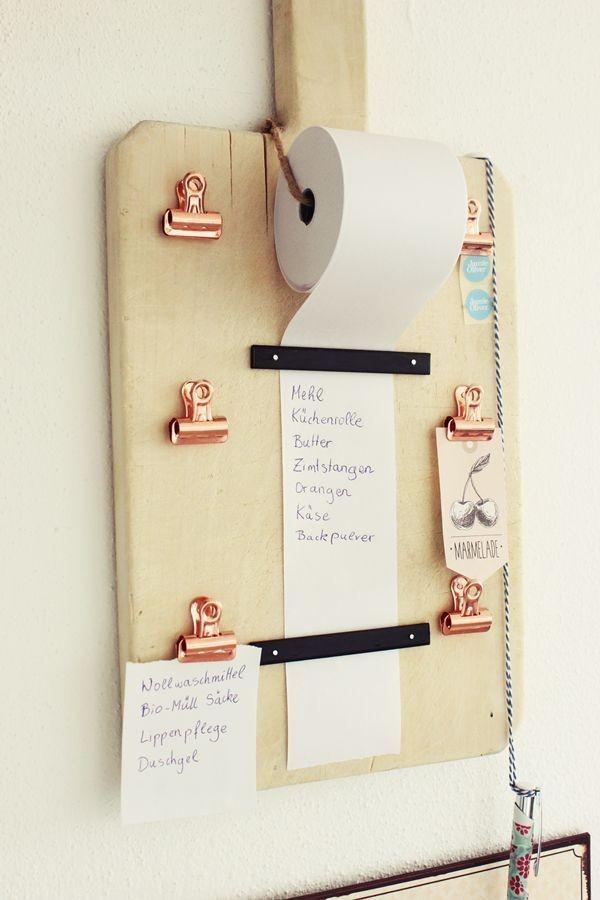 Jamie
Oliver
Jamie
Oliver
Mehl
Küchenrolle
Butter
Zimtstangen
Orangen
Käse
Backpulver
· MARMELADE ·
Wollwaschmittel
Bio-Müll Säcke
Lippenpflege
Duschgel